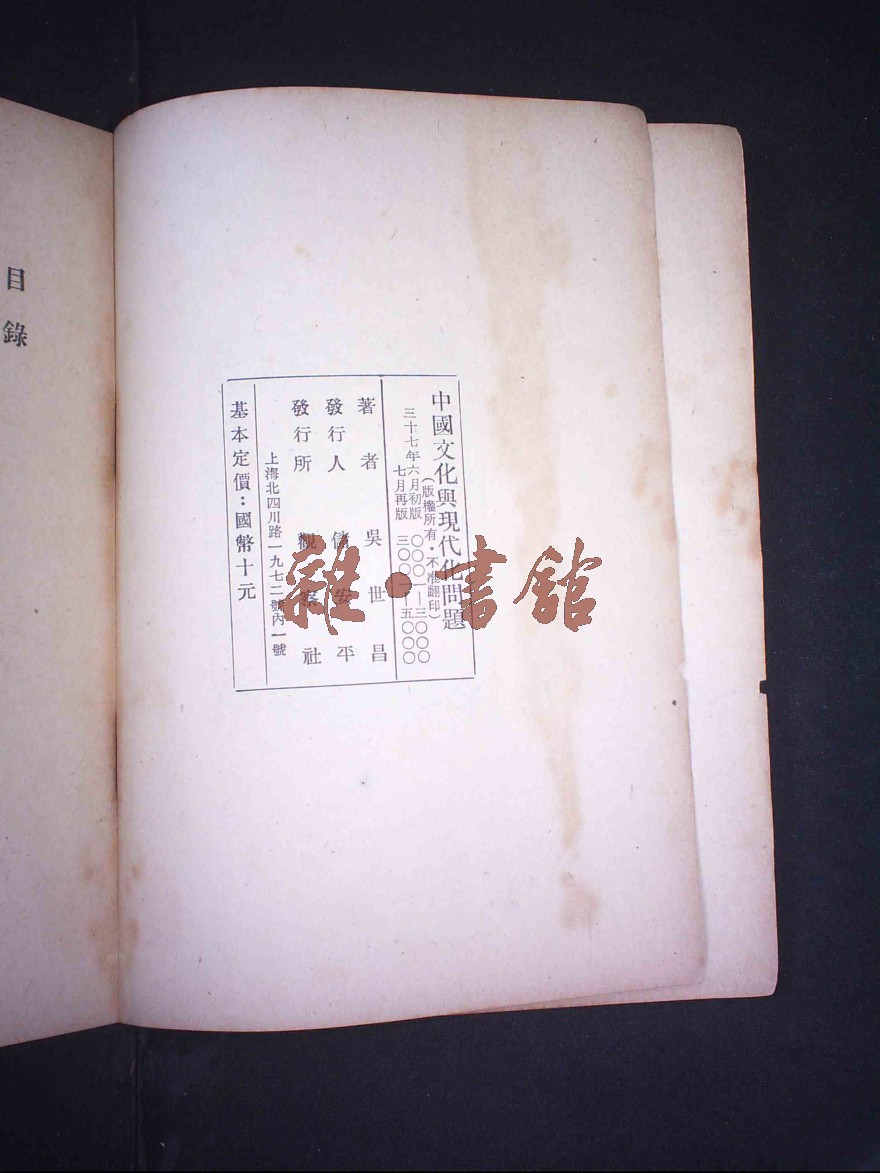 中國文化與現代化問題
(版權所有・不准翻印)
三十七年六月初版 ○○○一—三○○○
七月再版 三○○一—五○○○
著者 吳世昌
發行人 儲安平
發行所 觀察社
上海北四川路一九七二號內一號
基本定價：國幣十元
目錄
雜・書館